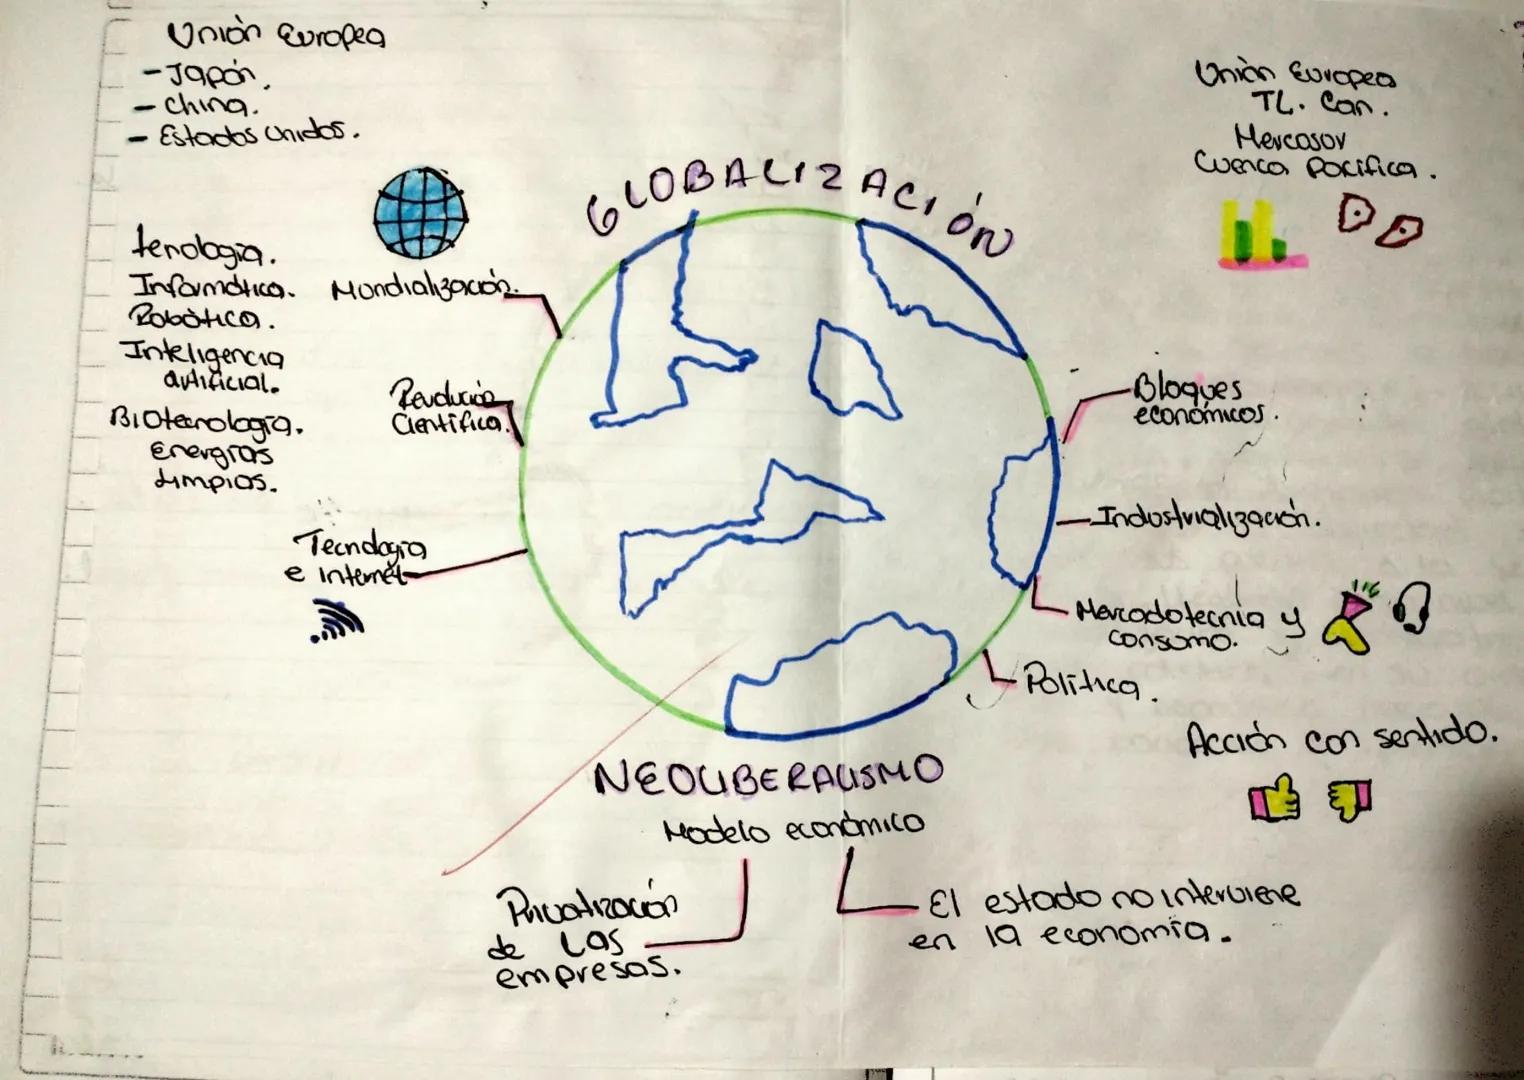 Unión Europea
- Japón.
- China.
- Estados Unidos.
Unión Europea
TL. Can.
Mercosor
Cuenca Pacífica.
GLOBALIZACIÓN
tenología.
Informática.
Robótica.
Inteligencia
artificial.
Biotecnología.
Energías
Limpias.
Mundialización.
Revolución
Científica.
Tecnología
e internet
Bloques
económicos.
Industrialización.
Mercadotecnia y
consumo.
Política.
Acción con sentido.
NEOLIBERALISMO
Modelo económico
Privatización
de Las
empresas.
El estado no interviene
en la economía.